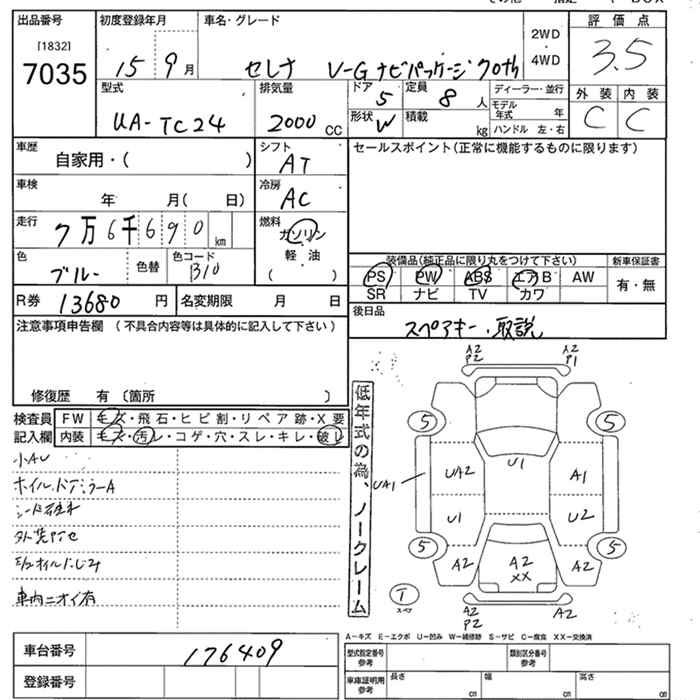 出品番号 初度登録年月 車名・グレード 2WD ・ 4WD 評価点
[1832]
7035 15 9月 セレナ V-G ナビパッケージ 70th 3.5
型式 排気量 ドア 5 定員 8人 ディーラー・並行 外装 内装
UA-TC24 2000CC 形状 W 積載 kg モデル年式 年 C C
ハンドル 左・右
車歴 自家用・( ) シフト AT セールスポイント(正常に機能するものに限ります)
車検 年 月( 日) 冷房 AC
走行 7万6千690km 燃料 ガソリン
軽油
( )
色 ブルー 色替 色コード B10
装備品(純正品に限り丸をつけて下さい) 新車保証書
PS PW ABS エアB AW 有・無
SR ナビ TV カワ
R券 13680円 名変期限 月 日 後日品
スペアキー・取説
注意事項申告欄 (不具合内容等は具体的に記入して下さい)
修復歴 有〔箇所 〕
検査員 FW キズ・飛石・ヒビ割・リペア跡・X要
記入欄 内装 キズ・汚レ・コゲ・穴・スレ・キレ・破レ
小AU
ホイルドアミラーA
車内ニオイ有
低年式の為、ノークレーム
A2 P2 A2 P1
5 5
U1
UA1 UA2 A1
U1 U2
5 5
A2 A2 XX A2
T
スペア
A2 P2 A2
A-キズ E-エクボ U-凹み W-補修跡 S-サビ C-腐食 XX-交換済
車台番号 176409
登録番号
型式指定番号 参考 類別区分番号 参考
車庫証明用 参考 長さ cm 幅 cm 高さ cm